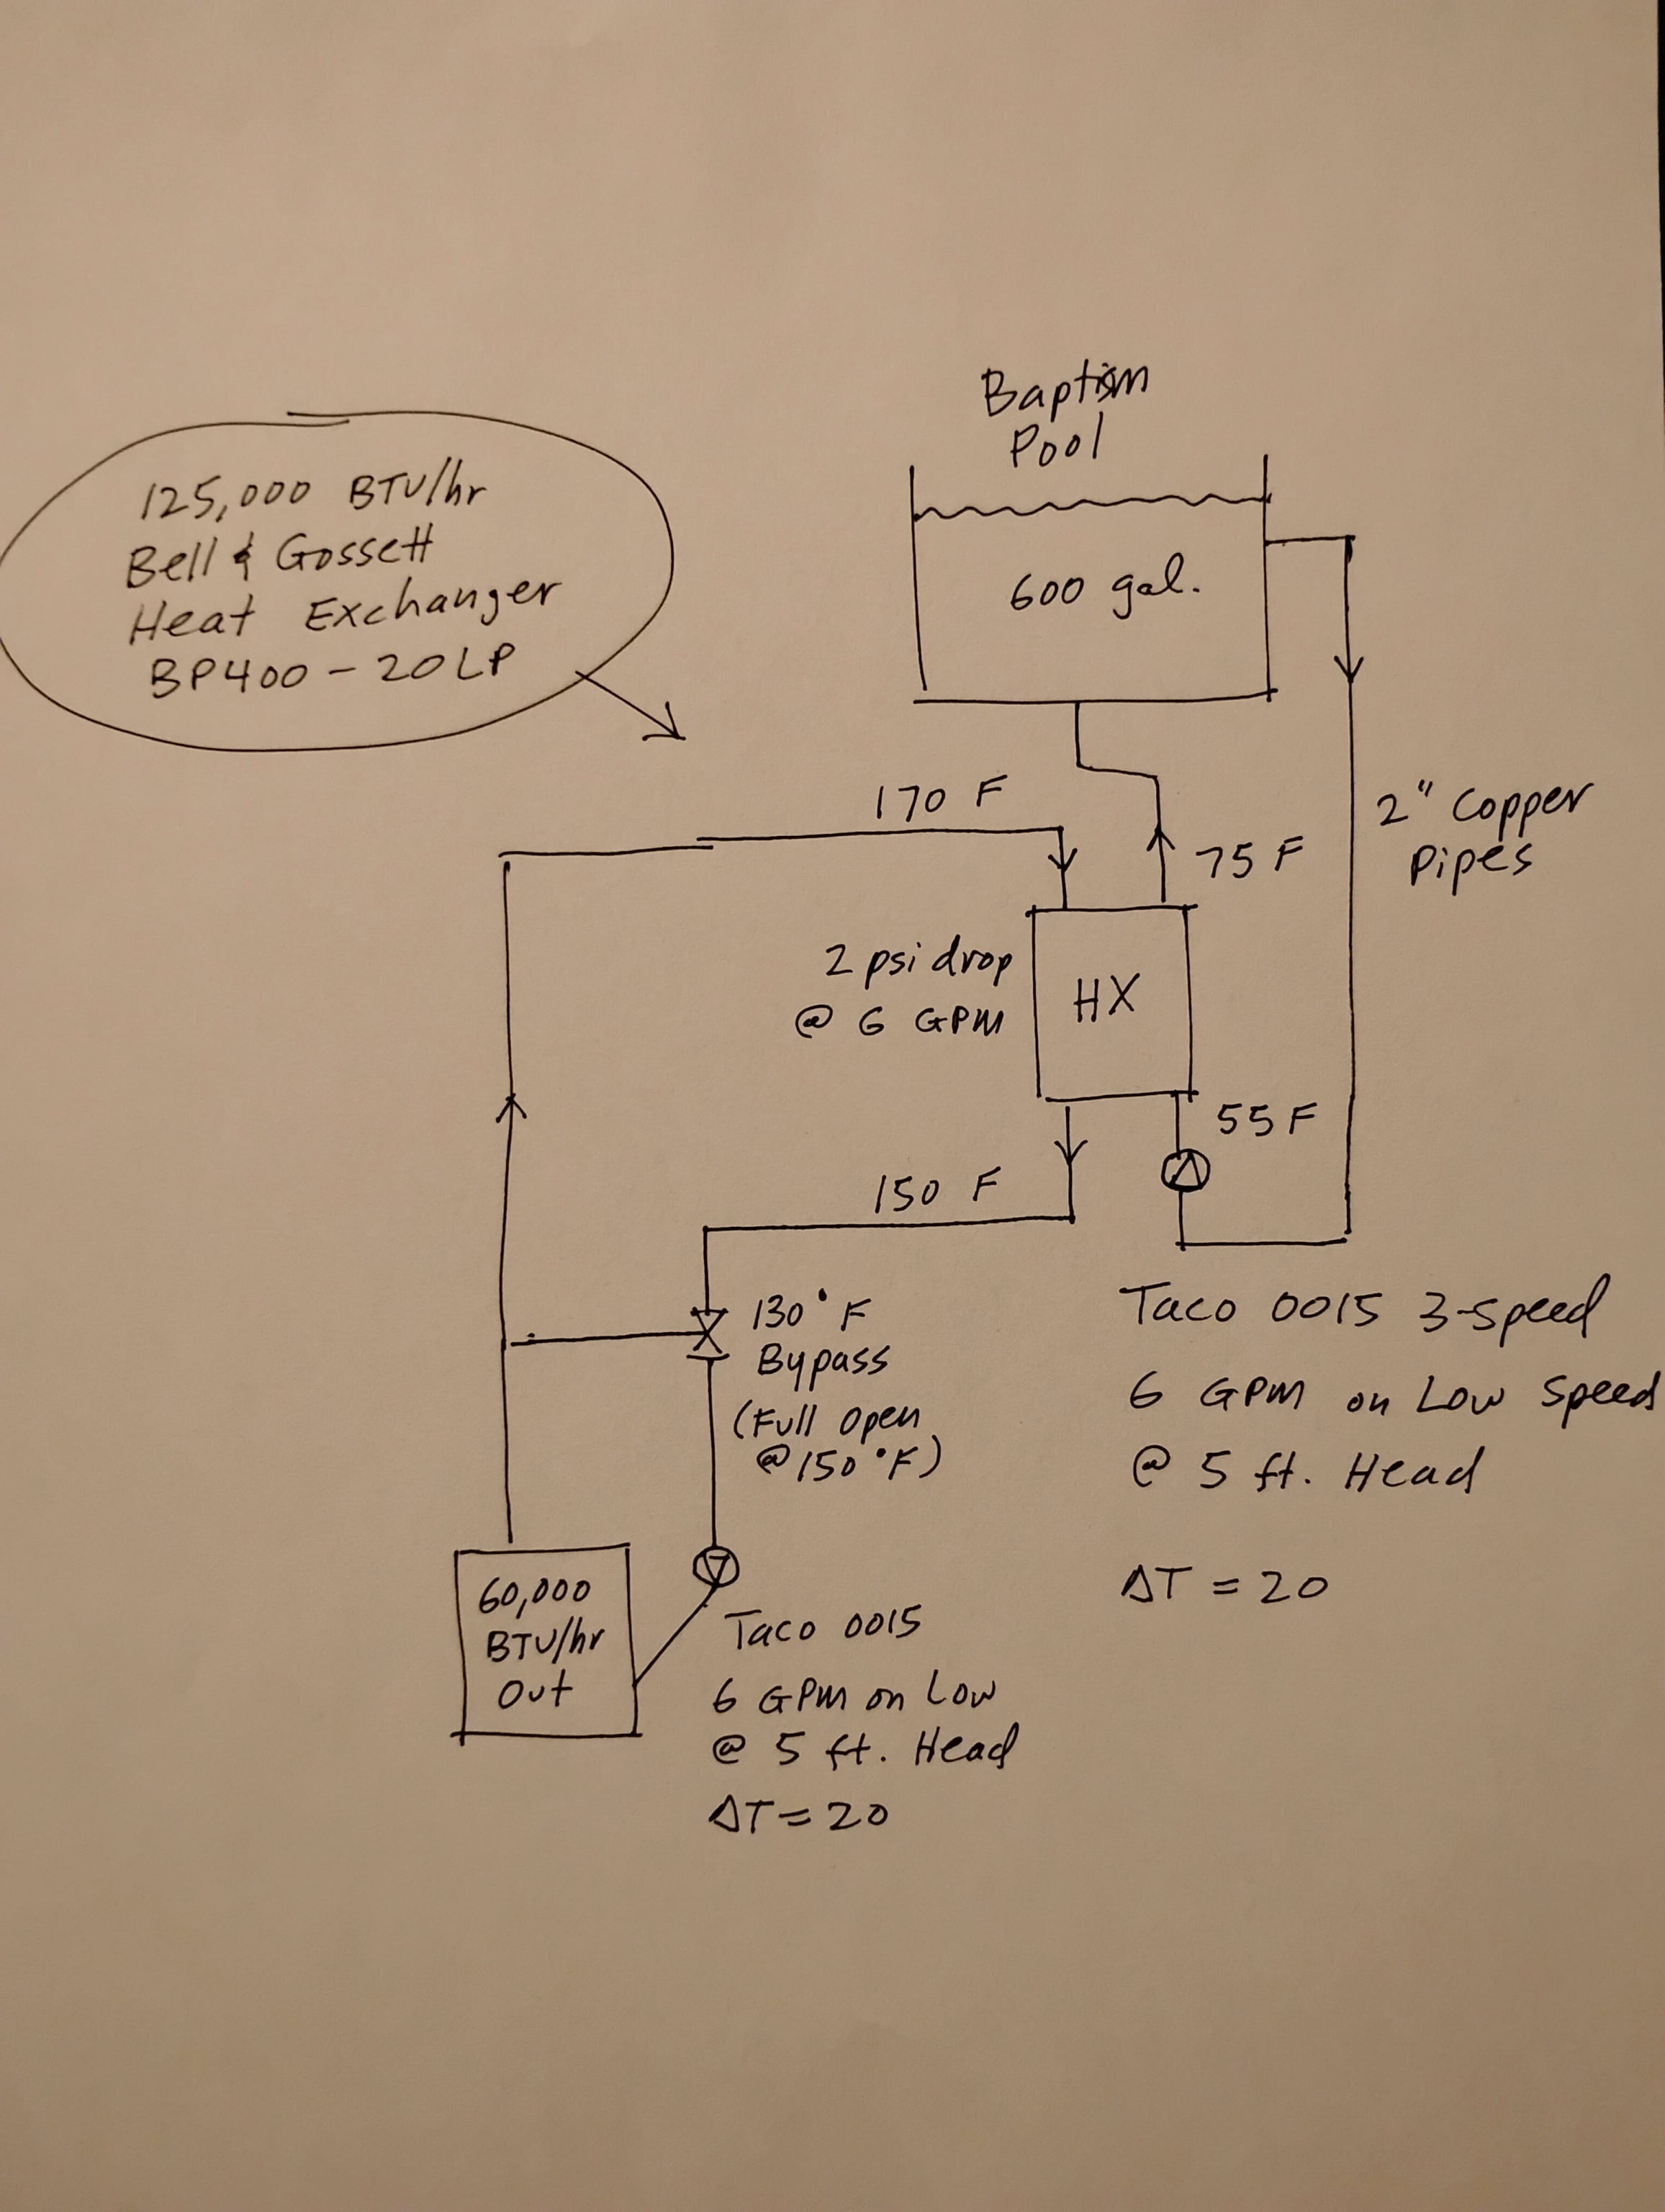 Baptism
Pool
125,000 BTU/hr
Bell & Gossett
Heat Exchanger
BP400-20LP
600 gal.
170 F
75 F
2" Copper
Pipes
2 psi drop
@ 6 GPM
HX
55 F
150 F
130°F
Bypass
(Full Open
@ 150°F)
Taco 0015 3-speed
6 GPM on Low Speed
@ 5 ft. Head
ΔT = 20
60,000
BTU/hr
Out
Taco 0015
6 GPM on Low
@ 5 ft. Head
ΔT = 20